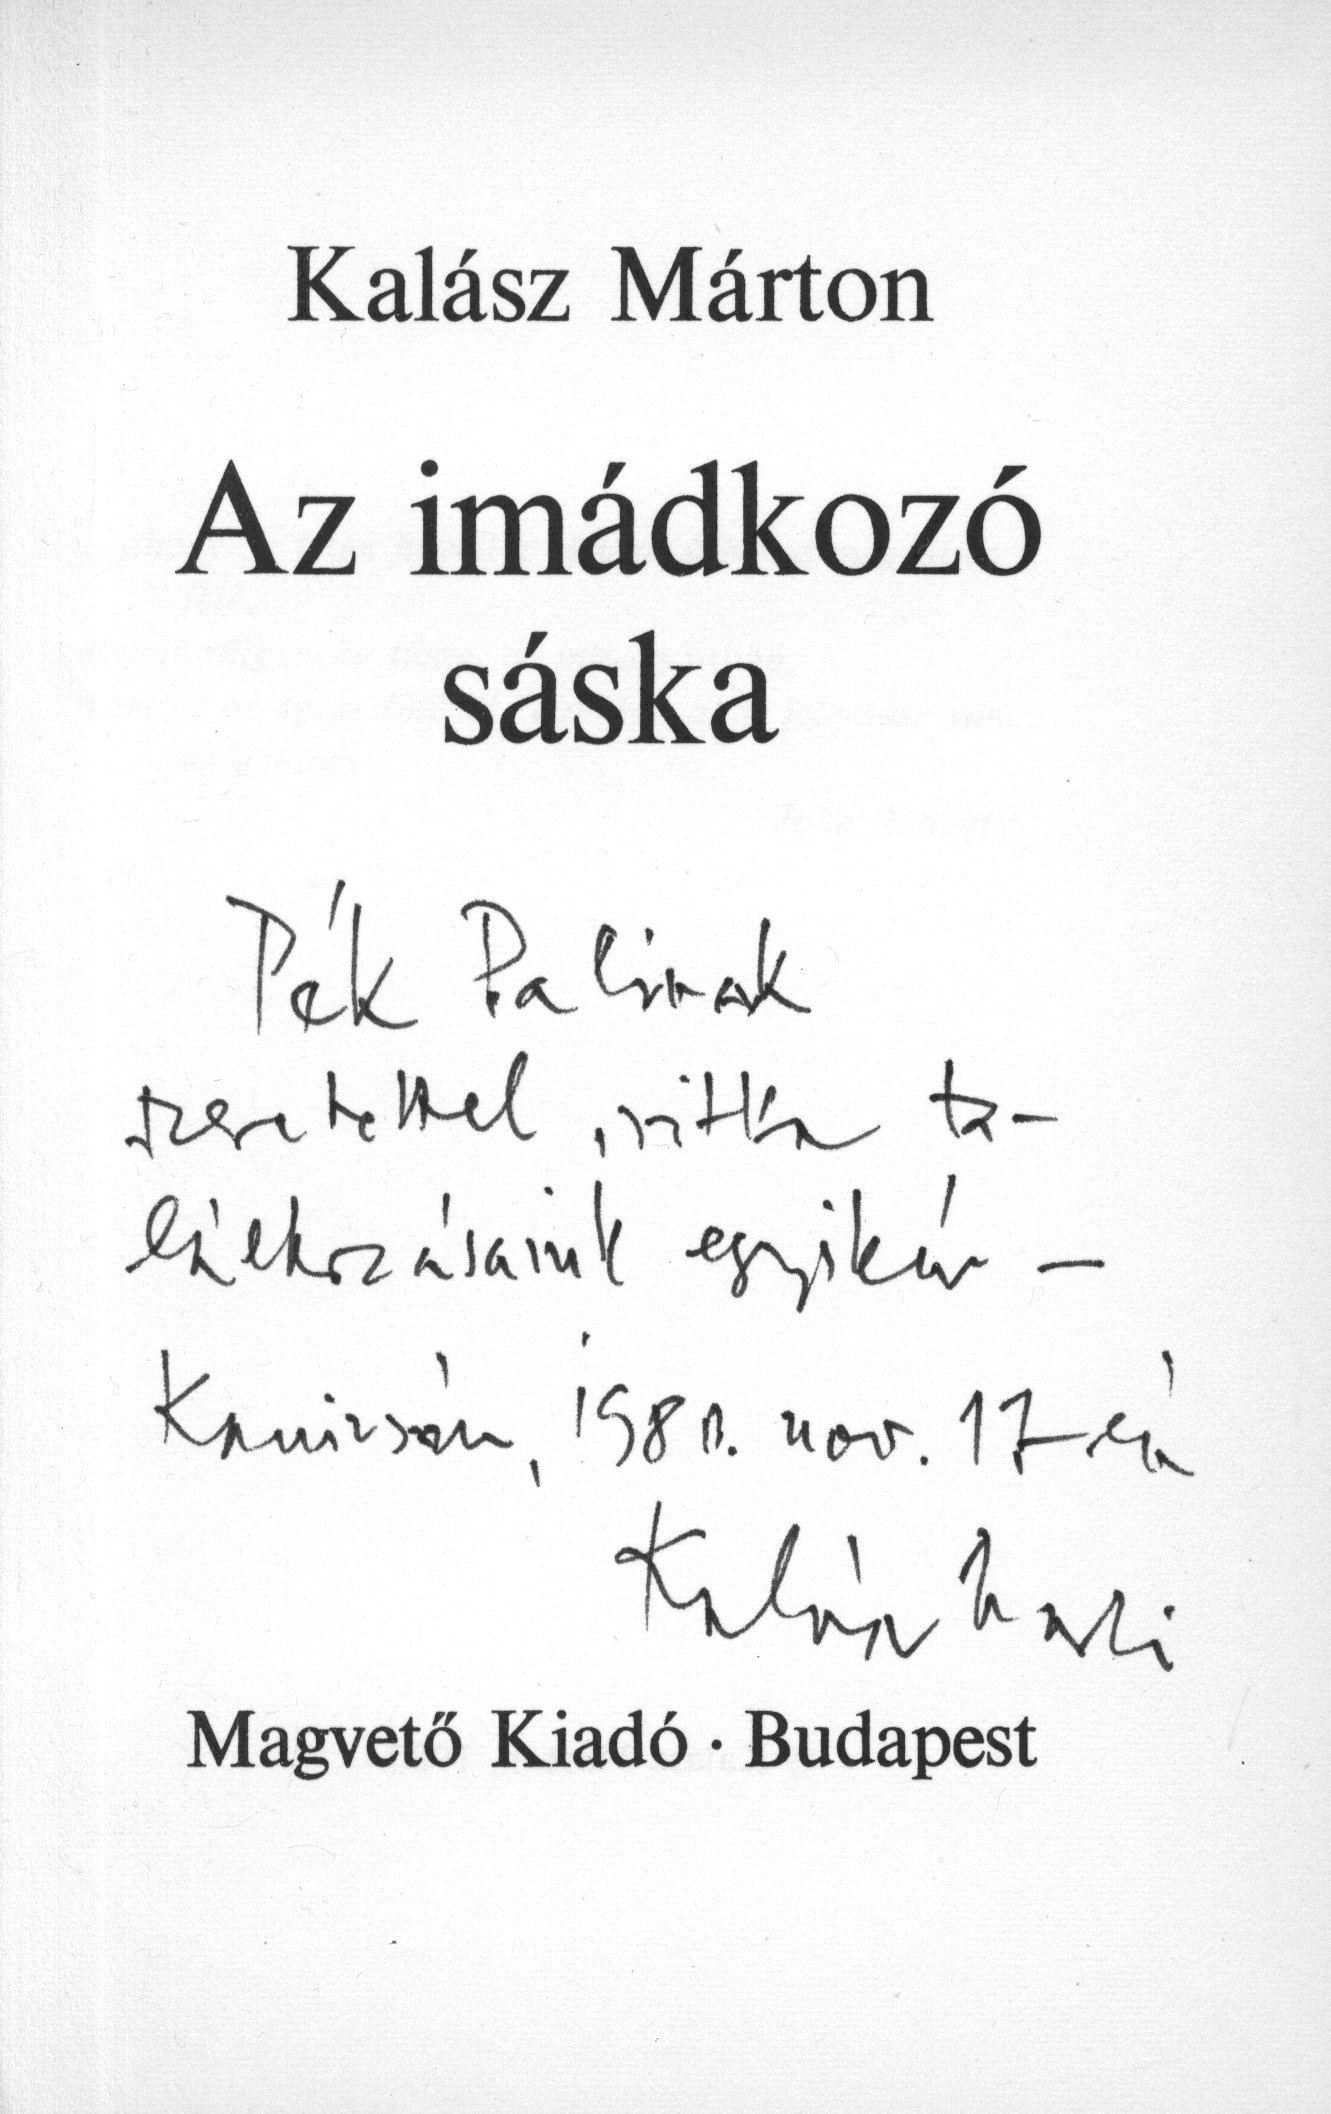 Kalász Márton
Az imádkozó
sáska
Pék Palinak
szeretettel, ritka ta-
lálkozásaink egyikén –
Kanizsán, 1980. nov. 17-én
Kalász Marci
Magvető Kiadó · Budapest